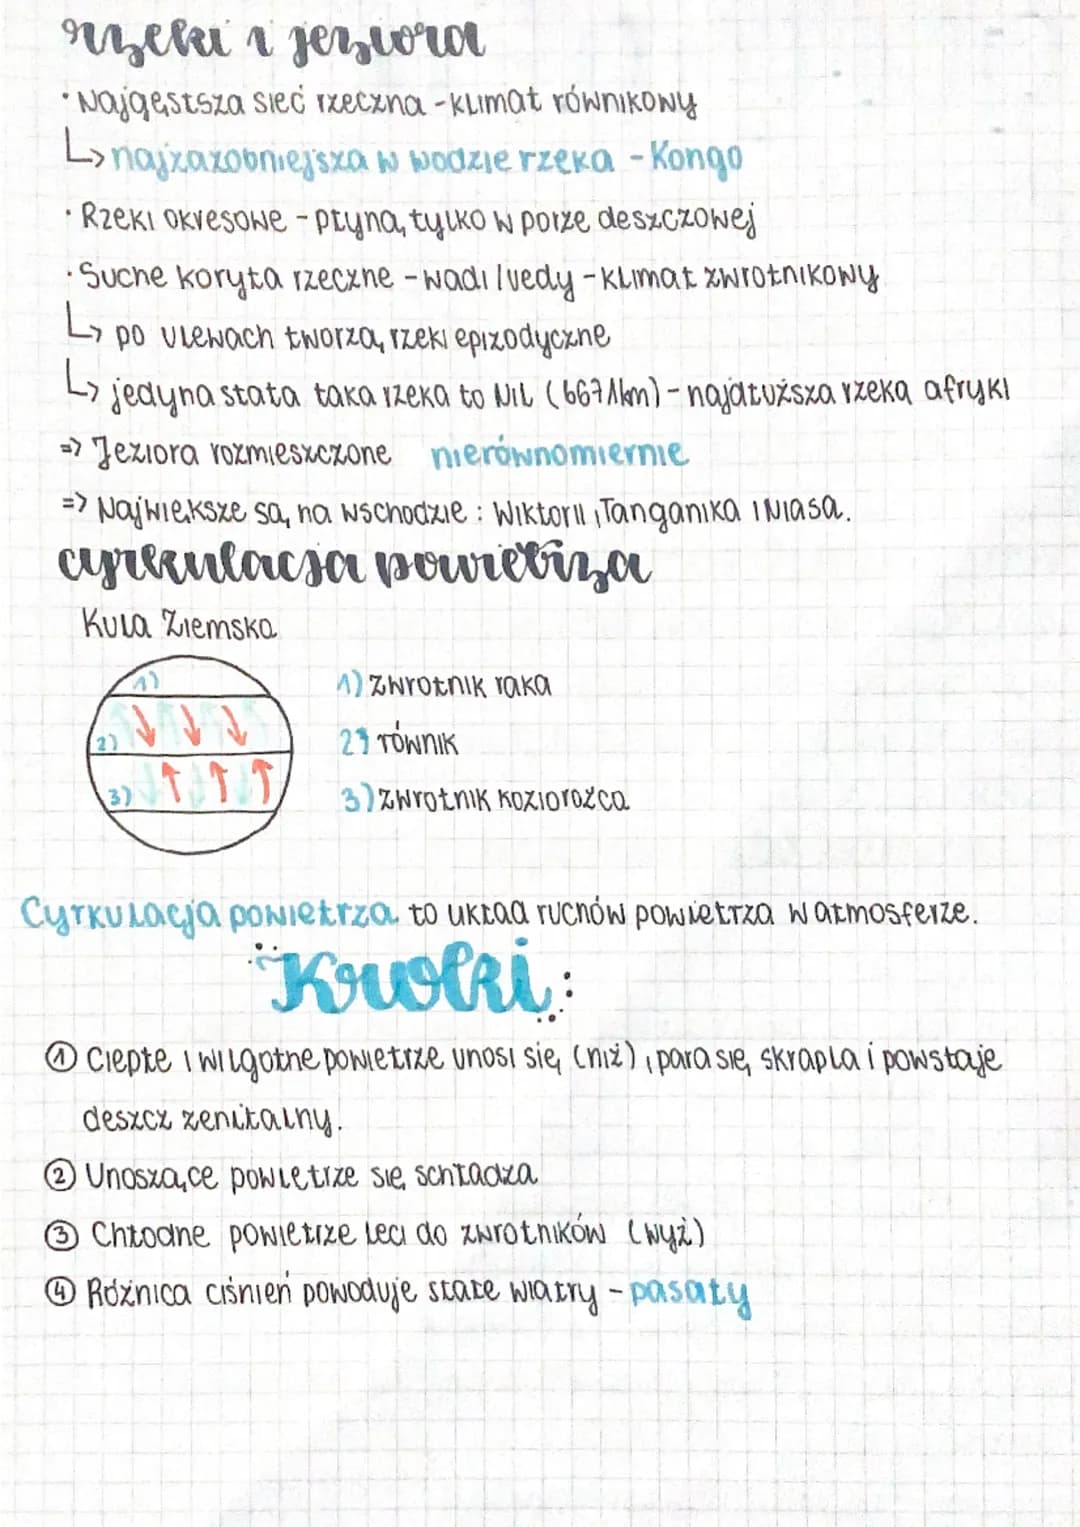 rzeki i jeziora
· Najgęstsza sieć rzeczna - klimat równikowy
↳ najzazobniejsza w wodzie rzeka - Kongo
· Rzeki okresowe - płyną tylko w porze deszczowej
· Suche koryta rzeczne - wadi / uedy - klimat zwrotnikowy
↳ po ulewach tworzą rzeki epizodyczne
↳ jedyna stała taka rzeka to Nil (6671km) - najdłuższa rzeka afryki
=> Jeziora rozmieszczone nierównomiernie
=> Największe są na wschodzie : Wiktorii, Tanganika i Niasa.
cyrkulacja powietrza
Kula Ziemska
1)
2)
3)
1) Zwrotnik raka
2) równik
3) zwrotnik koziorożca
Cyrkulacja powietrza to układ ruchów powietrza w atmosferze.
Kroki:
① Ciepłe i wilgotne powietrze unosi się (niż), para się skrapla i powstaje
deszcz zenitalny.
② Unoszące powietrze się schładza
③ Chłodne powietrze leci do zwrotników (wyż)
④ Różnica ciśnień powoduje stałe wiatry - pasaty